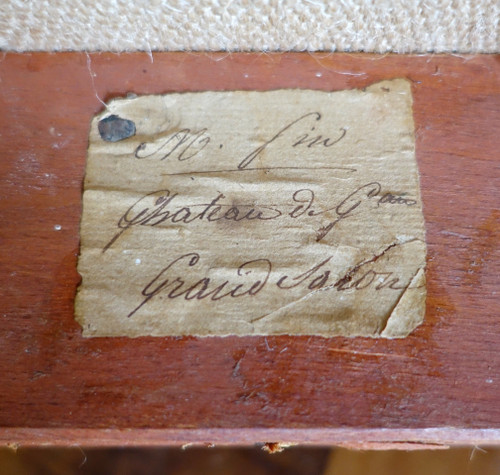 M. fin
Chateau de G
Grand Salon